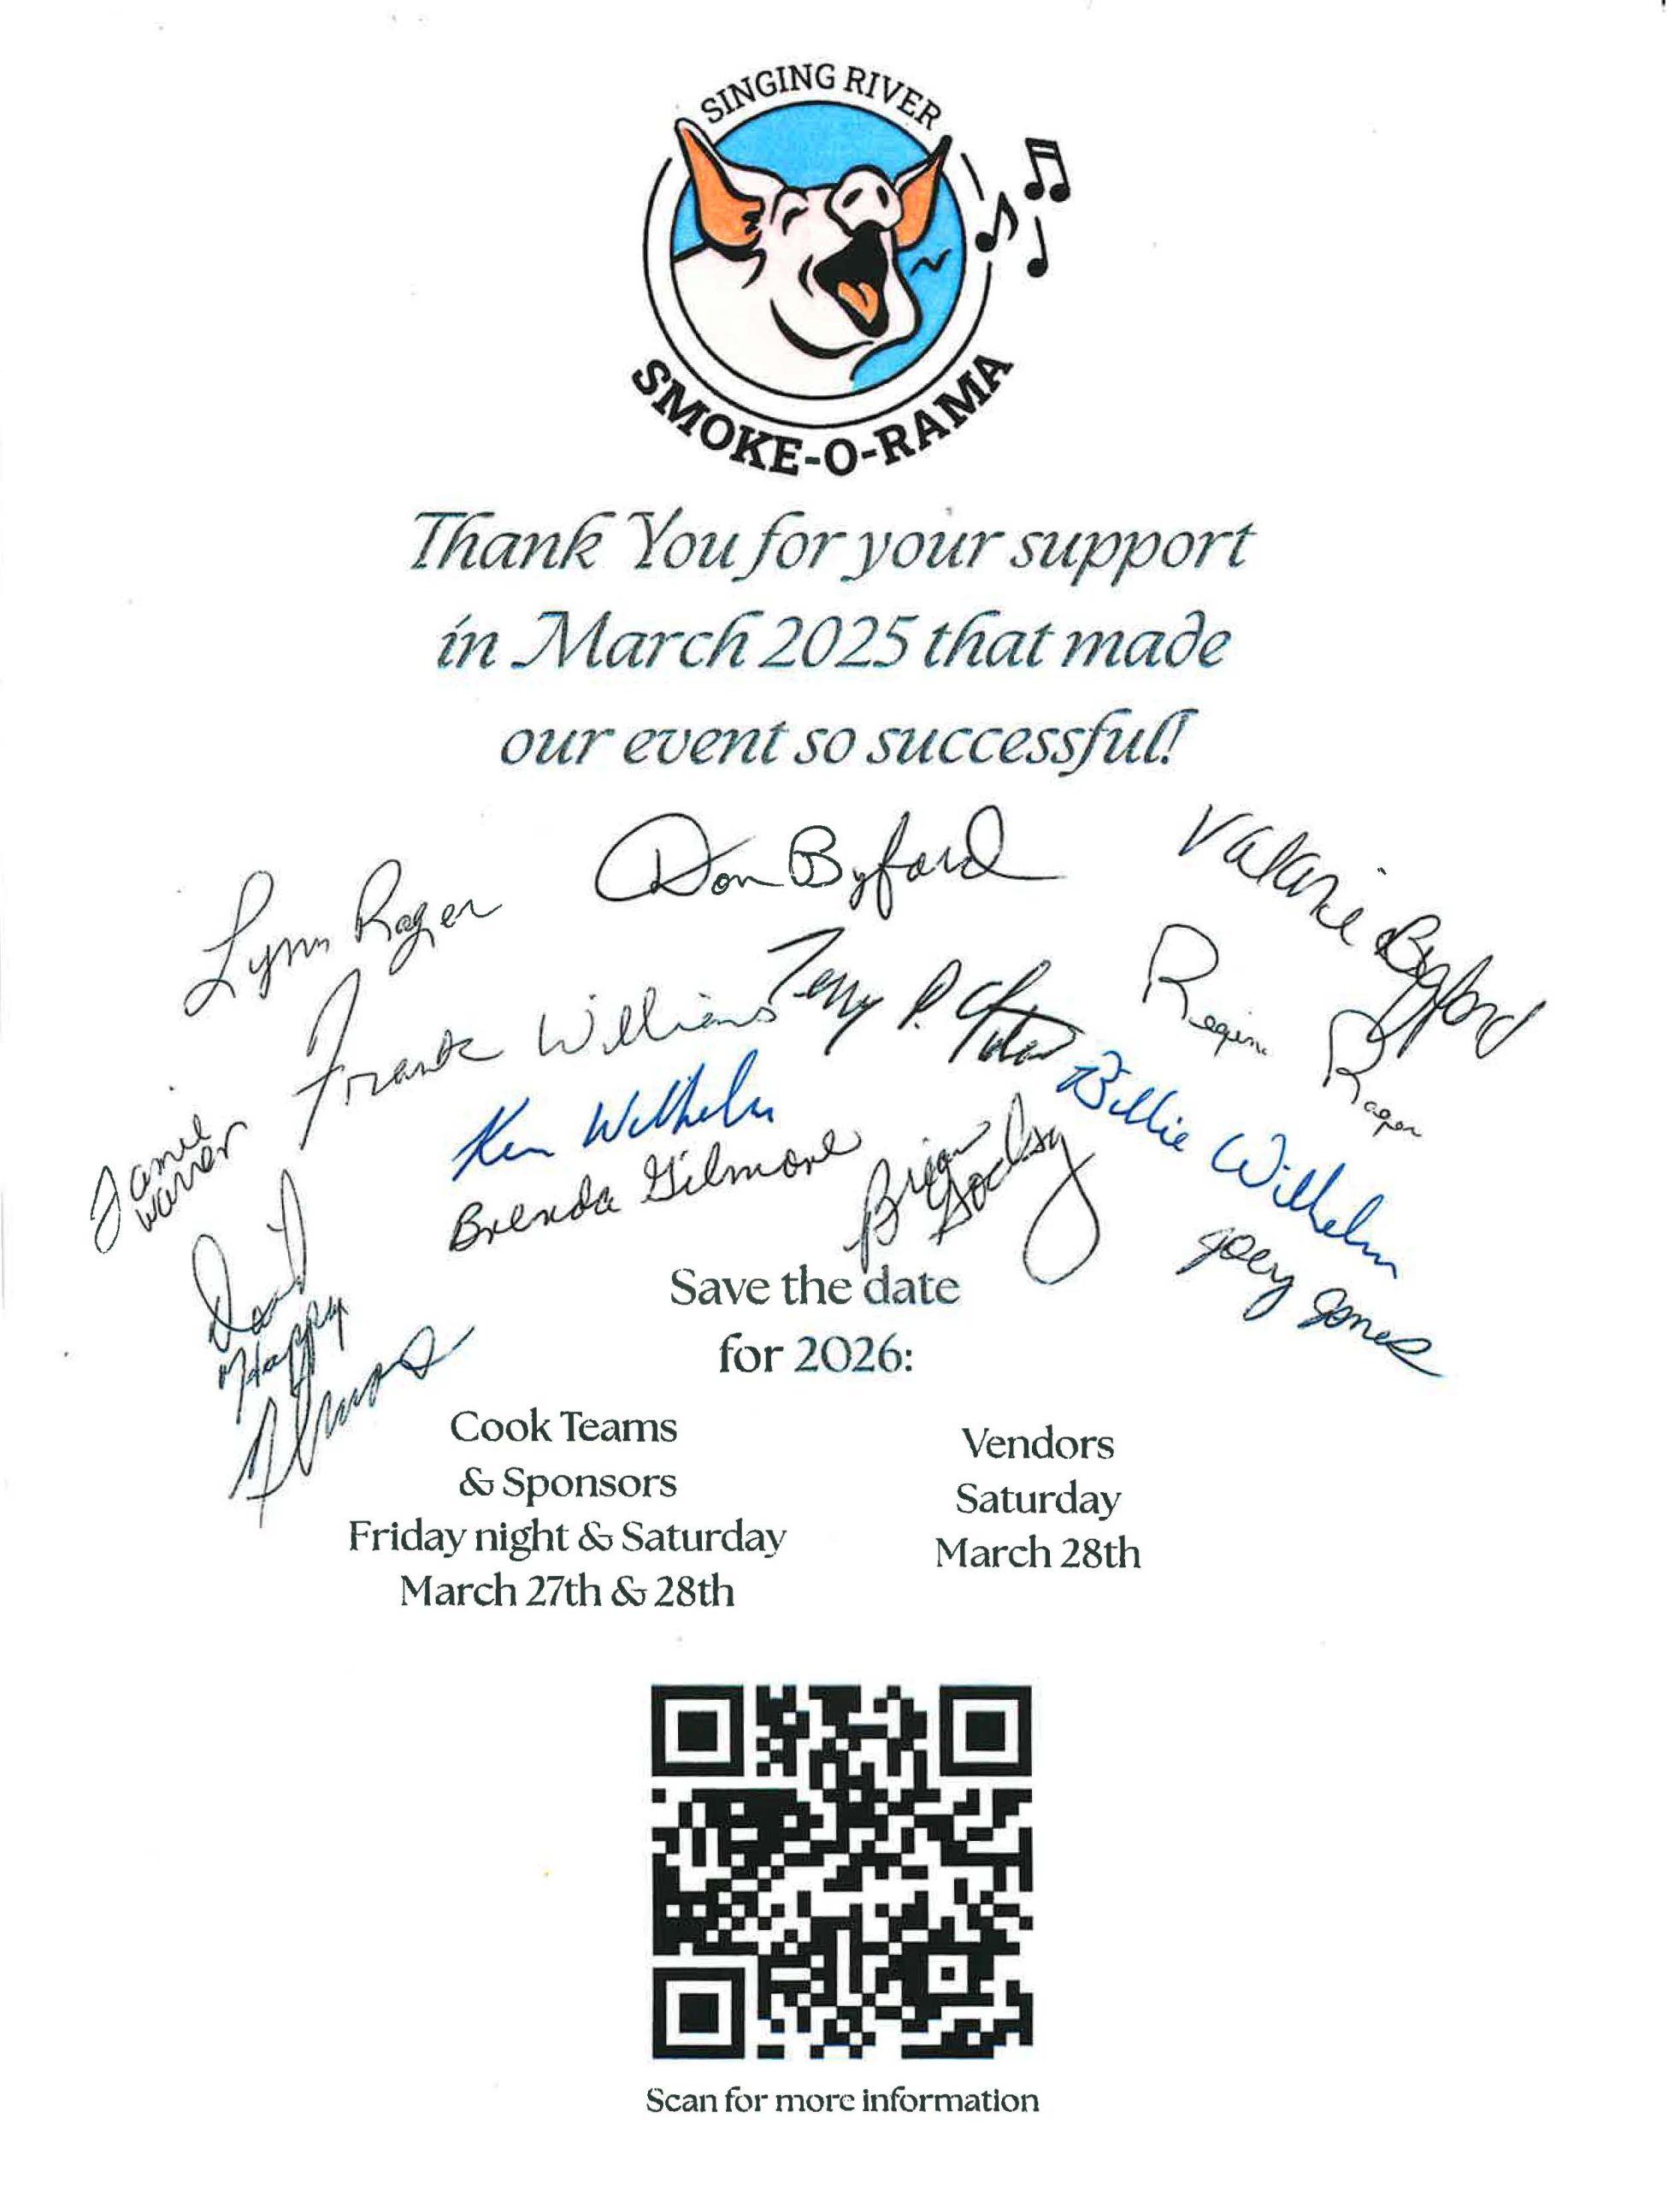 SINGING RIVER
SMOKE-O-RAMA
Thank You for your support
in March 2025 that made
our event so successful!
Lynn Rager
Don Byford
Valarie Byford
Frank Williams
Terry P.
Regina Rager
Jamie
Warren
Ken Wilhelm
Billie Wilhelm
Brenda Gilmore
Brian
Joey Jones
David
"Happy"
Save the date
for 2026:
Cook Teams
& Sponsors
Friday night & Saturday
March 27th & 28th
Vendors
Saturday
March 28th
Scan for more information